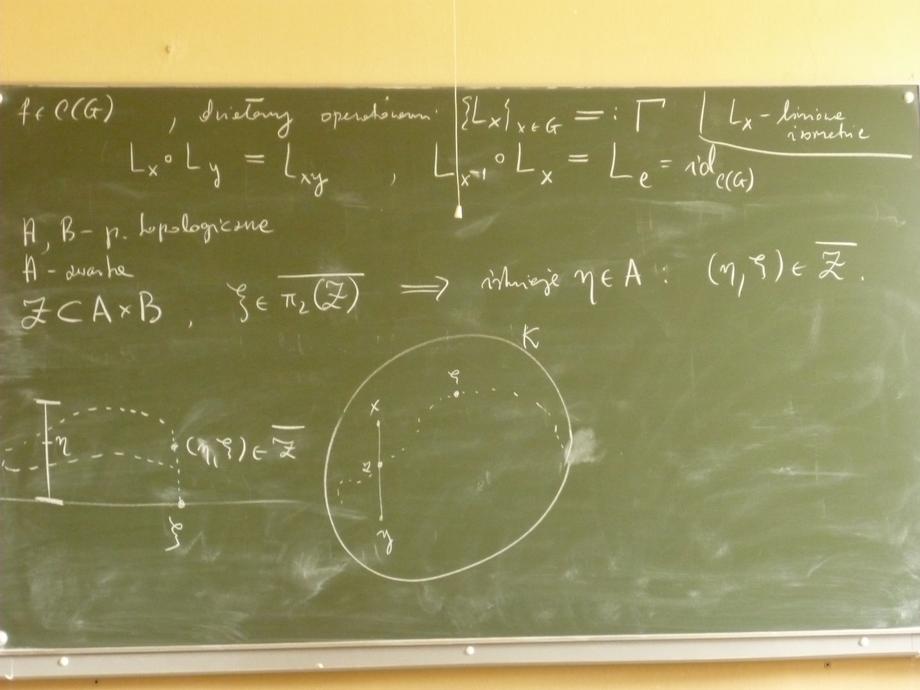 f ∈ C(G) , działamy operatorami {L_x}_{x∈G} =: Γ L_x - liniowe izometrie
L_x ∘ L_y = L_{xy} , L_{x^{-1}} ∘ L_x = L_e = id_{C(G)}
A, B - p. topologiczne
A - zwarta
Z ⊂ A × B , ξ ∈ \overline{π_2(Z)} ⟹ istnieje η ∈ A : (η, ξ) ∈ \overline{Z} .
K
ς
x
η (η, ξ) ∈ \overline{Z}
z
ξ
y